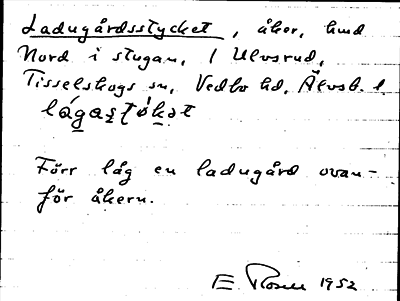 Ladugårdsstycket, åker, hmd
Nord i stugan, 1 Ulvsrud,
Tisselskogs sn, Vedbo hd, Älvsb. l.
Förr låg en ladugård ovan-
för åkern.
E. Rosell 1952